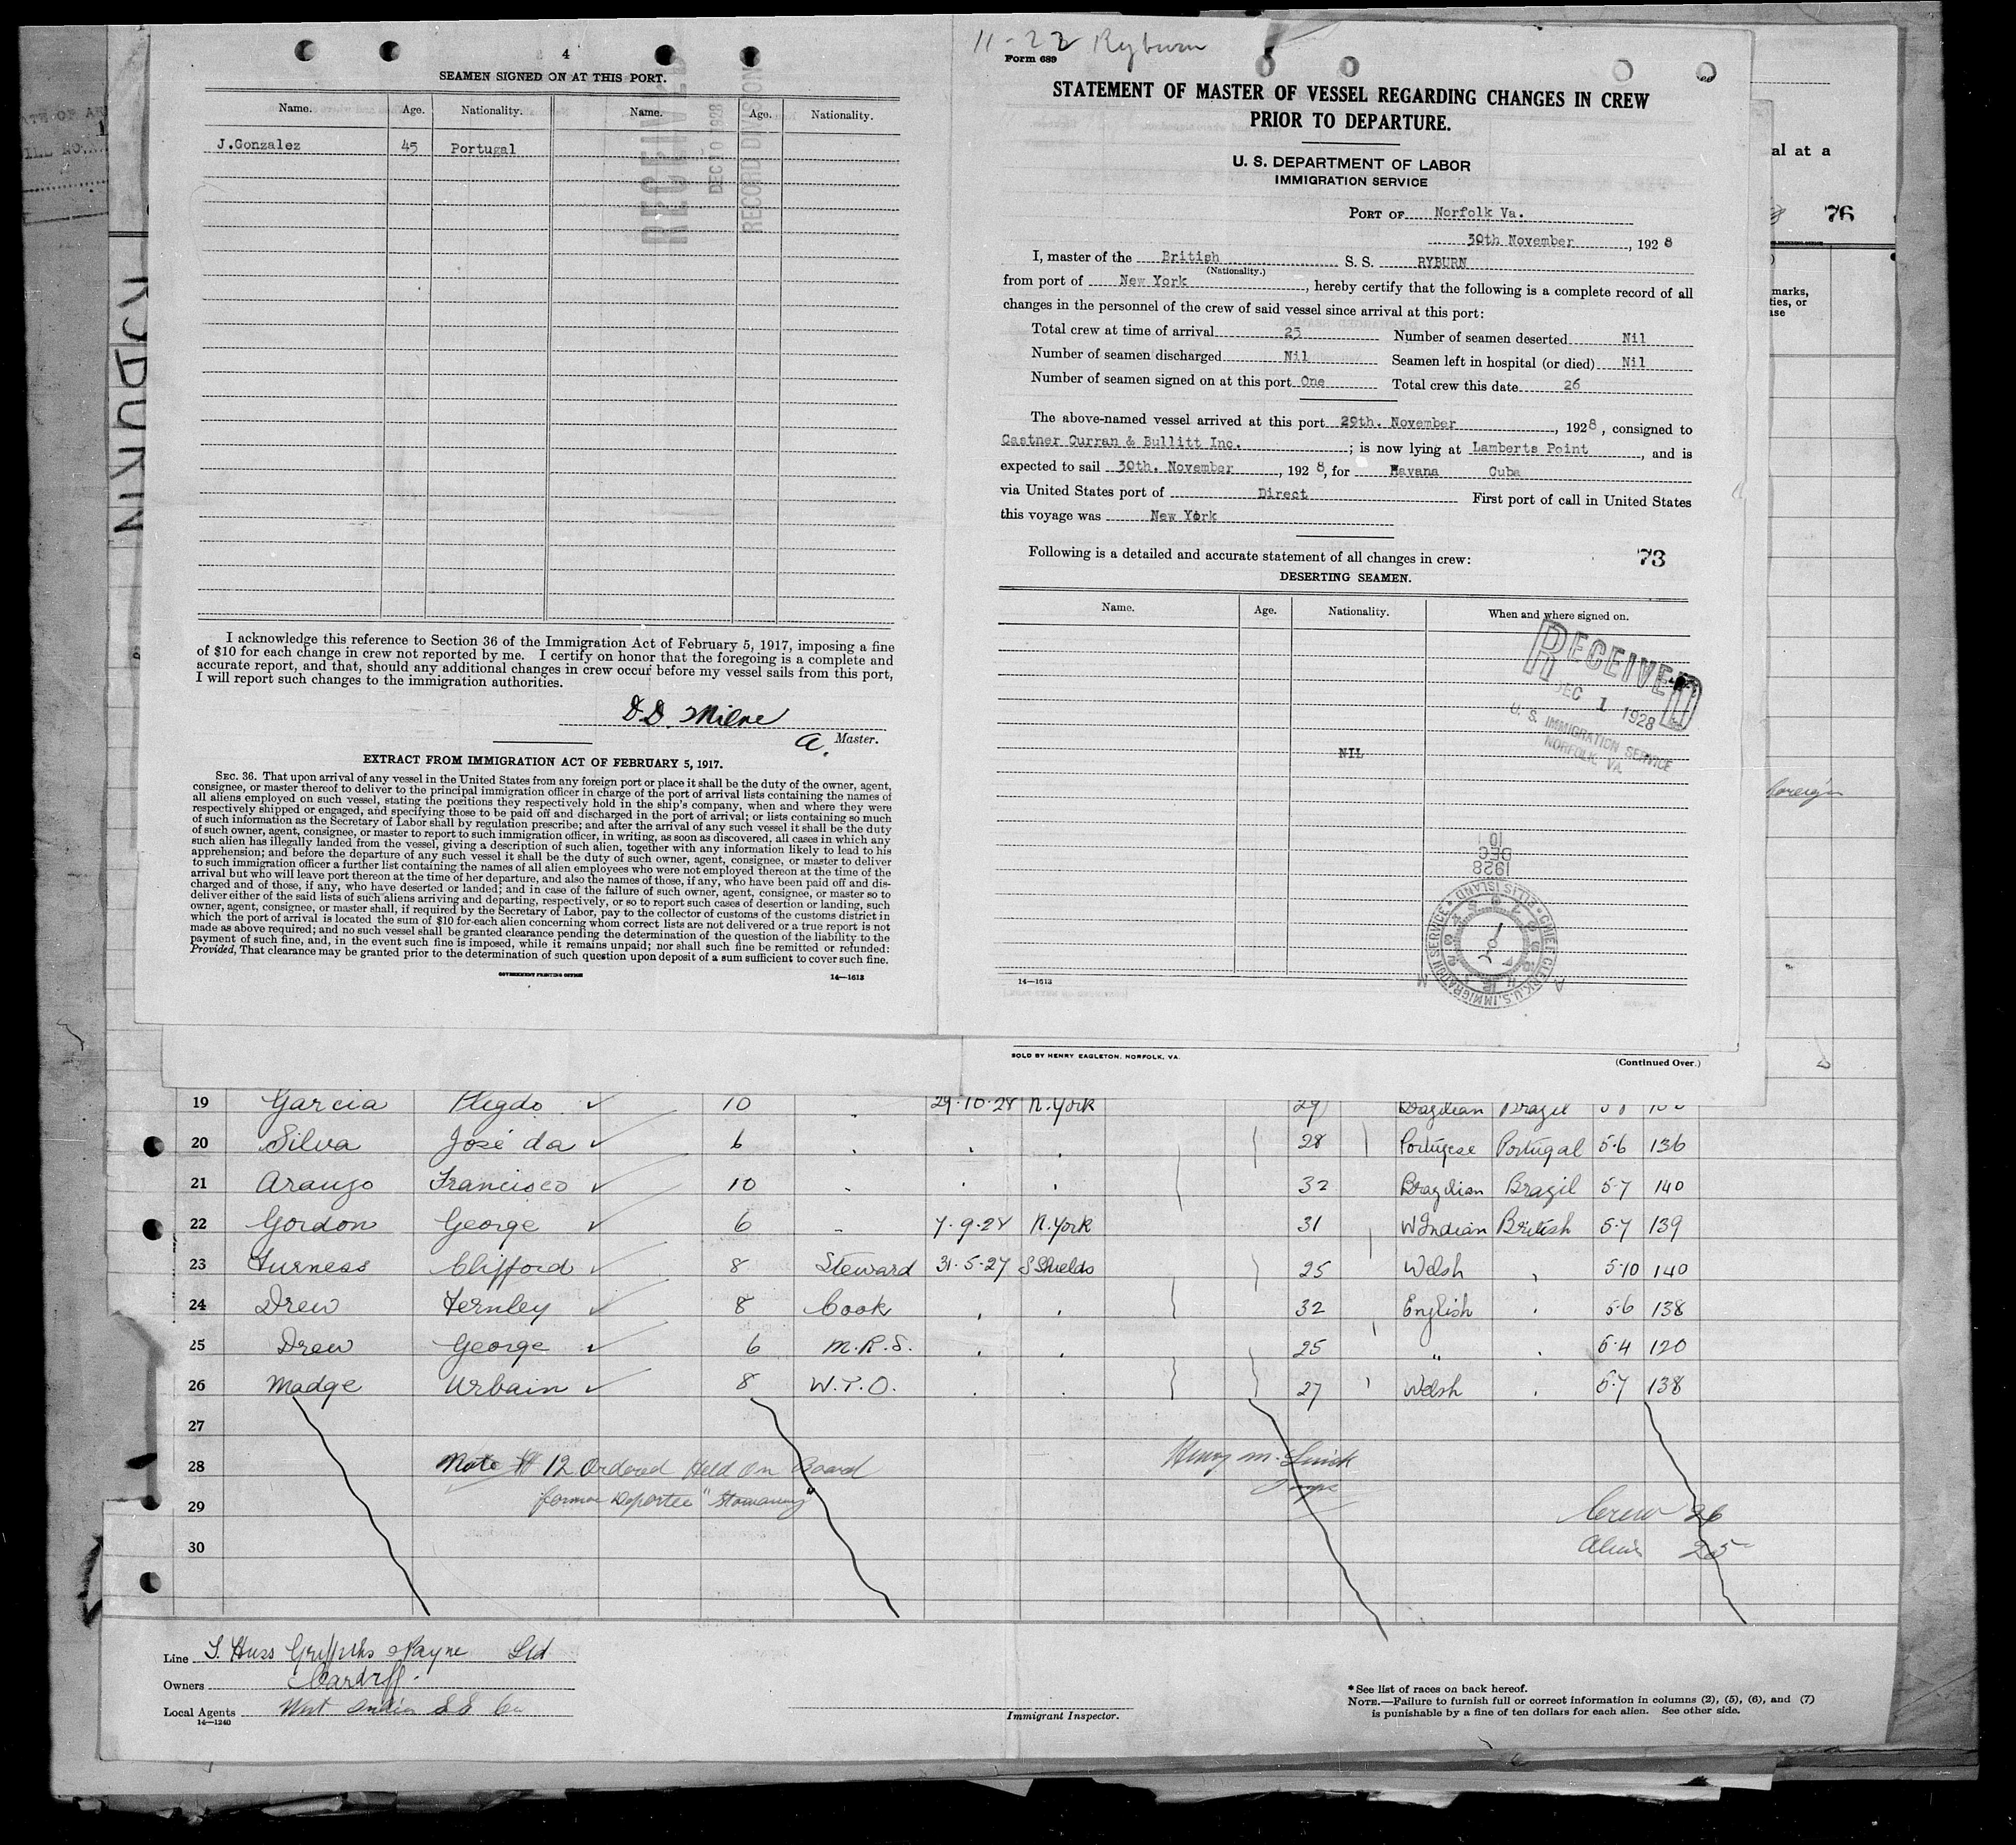 4
SEAMEN SIGNED ON AT THIS PORT.
Name. Age. Nationality. Name. Age. Nationality.
J.Gonzalez 45 Portugal
RECEIVED
DEC 10 1928
RECORD DIVISION
I acknowledge this reference to Section 36 of the Immigration Act of February 5, 1917, imposing a fine
of $10 for each change in crew not reported by me. I certify on honor that the foregoing is a complete and
accurate report, and that, should any additional changes in crew occur before my vessel sails from this port,
I will report such changes to the immigration authorities.
D.D. Milne
a. Master.
EXTRACT FROM IMMIGRATION ACT OF FEBRUARY 5, 1917.
SEC. 36. That upon arrival of any vessel in the United States from any foreign port or place it shall be the duty of the owner, agent,
consignee, or master thereof to deliver to the principal immigration officer in charge of the port of arrival lists containing the names of
all aliens employed on such vessel, stating the positions they respectively hold in the ship's company, when and where they were
respectively shipped or engaged, and specifying those to be paid off and discharged in the port of arrival; or lists containing so much
of such information as the Secretary of Labor shall by regulation prescribe; and after the arrival of any such vessel it shall be the duty
of such owner, agent, consignee, or master to report to such immigration officer, in writing, as soon as discovered, all cases in which any
such alien has illegally landed from the vessel, giving a description of such alien, together with any information likely to lead to his
apprehension; and before the departure of any such vessel it shall be the duty of such owner, agent, consignee, or master to deliver
to such immigration officer a further list containing the names of all alien employees who were not employed thereon at the time of the
arrival but who will leave port thereon at the time of her departure, and also the names of those, if any, who have been paid off and dis-
charged and of those, if any, who have deserted or landed; and in case of the failure of such owner, agent, consignee, or master so to
deliver either of the said lists of such aliens arriving and departing, respectively, or so to report such cases of desertion or landing, such
owner, agent, consignee, or master shall, if required by the Secretary of Labor, pay to the collector of customs of the customs district in
which the port of arrival is located the sum of $10 for each alien concerning whom correct lists are not delivered or a true report is not
made as above required; and no such vessel shall be granted clearance pending the determination of the question of the liability to the
payment of such fine, and, in the event such fine is imposed, while it remains unpaid; nor shall such fine be remitted or refunded:
Provided, That clearance may be granted prior to the determination of such question upon deposit of a sum sufficient to cover such fine.
GOVERNMENT PRINTING OFFICE 14—1613
11-22 Ryburn
Form 689
STATEMENT OF MASTER OF VESSEL REGARDING CHANGES IN CREW
PRIOR TO DEPARTURE.
U. S. DEPARTMENT OF LABOR
IMMIGRATION SERVICE
PORT OF Norfolk Va.
30th November, 1928
I, master of the British S. S. RYBURN
(Nationality.)
from port of New York, hereby certify that the following is a complete record of all
changes in the personnel of the crew of said vessel since arrival at this port:
Total crew at time of arrival 25 Number of seamen deserted Nil
Number of seamen discharged Nil Seamen left in hospital (or died) Nil
Number of seamen signed on at this port One Total crew this date 26
The above-named vessel arrived at this port 29th. November, 1928, consigned to
Castner Curran & Bullitt Inc.; is now lying at Lamberts Point, and is
expected to sail 30th. November, 1928, for Havana Cuba
via United States port of Direct First port of call in United States
this voyage was New York
Following is a detailed and accurate statement of all changes in crew: 73
DESERTING SEAMEN.
Name. Age. Nationality. When and where signed on.
RECEIVED
DEC 1 1928
U. S. IMMIGRATION SERVICE
NORFOLK, VA.
NIL
1928
DEC
10
CHIEF CLERK, U.S. IMMIGRATION SERVICE ELLIS ISLAND
14—1613
SOLD BY HENRY EAGLETON, NORFOLK, VA. (Continued Over.)
al at a
76
marks,
ties, or
ase
foreign
RYBURN
19 Garcia 10 29.10.28 N.York 29 Brazilian Brazil
20 Silva José da 6 28 Portugese Portugal 5.6 136
21 Araujo Francisco 10 32 Brazilian Brazil 5.7 140
22 Gordon George 6 7.9.28 N.York 31 W Indian British 5.7 139
23 Furness Clifford 8 Steward 31.5.27 S Shields 25 Welsh 5.10 140
24 Drew Fernley 8 Cook 32 English 5.6 138
25 Drew George 6 M.R.S. 25 " 5.4 120
26 Madge Urbain 8 W.T.O. 27 Welsh 5.7 138
27
28 Note # 12 Ordered Held on Board
29 former Deportee "Stowaway"
30
Henry M.
Crew 26
Aliens 25
Line Griffiths Payne Ltd
Owners Cardiff.
Local Agents West India SS Co
14—1240
Immigrant Inspector.
* See list of races on back hereof.
NOTE.—Failure to furnish full or correct information in columns (2), (5), (6), and (7)
is punishable by a fine of ten dollars for each alien. See other side.